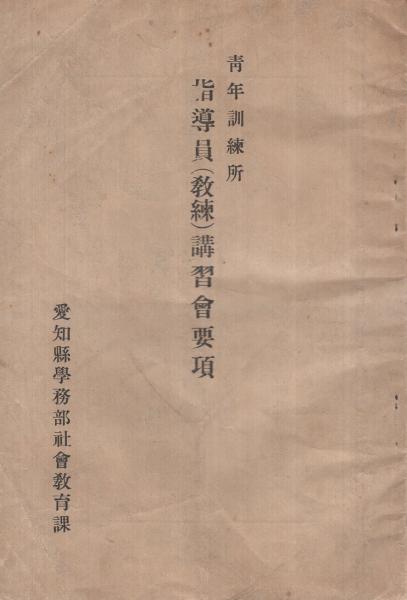 靑年訓練所
指導員(敎練)講習會要項
愛知縣學務部社會敎育課